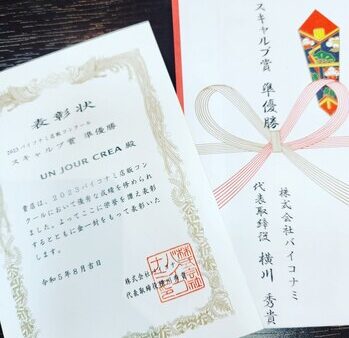 表彰状
2023バイコナミ店販コンクール
スキャルプ賞 準優勝
UN JOUR CREA 殿
貴店は、2023バイコナミ店販コン
クールにおいて優秀な成績を修められ
ました。よってここに栄誉を讃え表彰
するとともに金一封をもって表彰いた
します。
令和5年8月吉日
株式会社
代表取締役 横川秀貴
スキャルプ賞 準優勝
株式会社バイコナミ
代表取締役 横川 秀貴